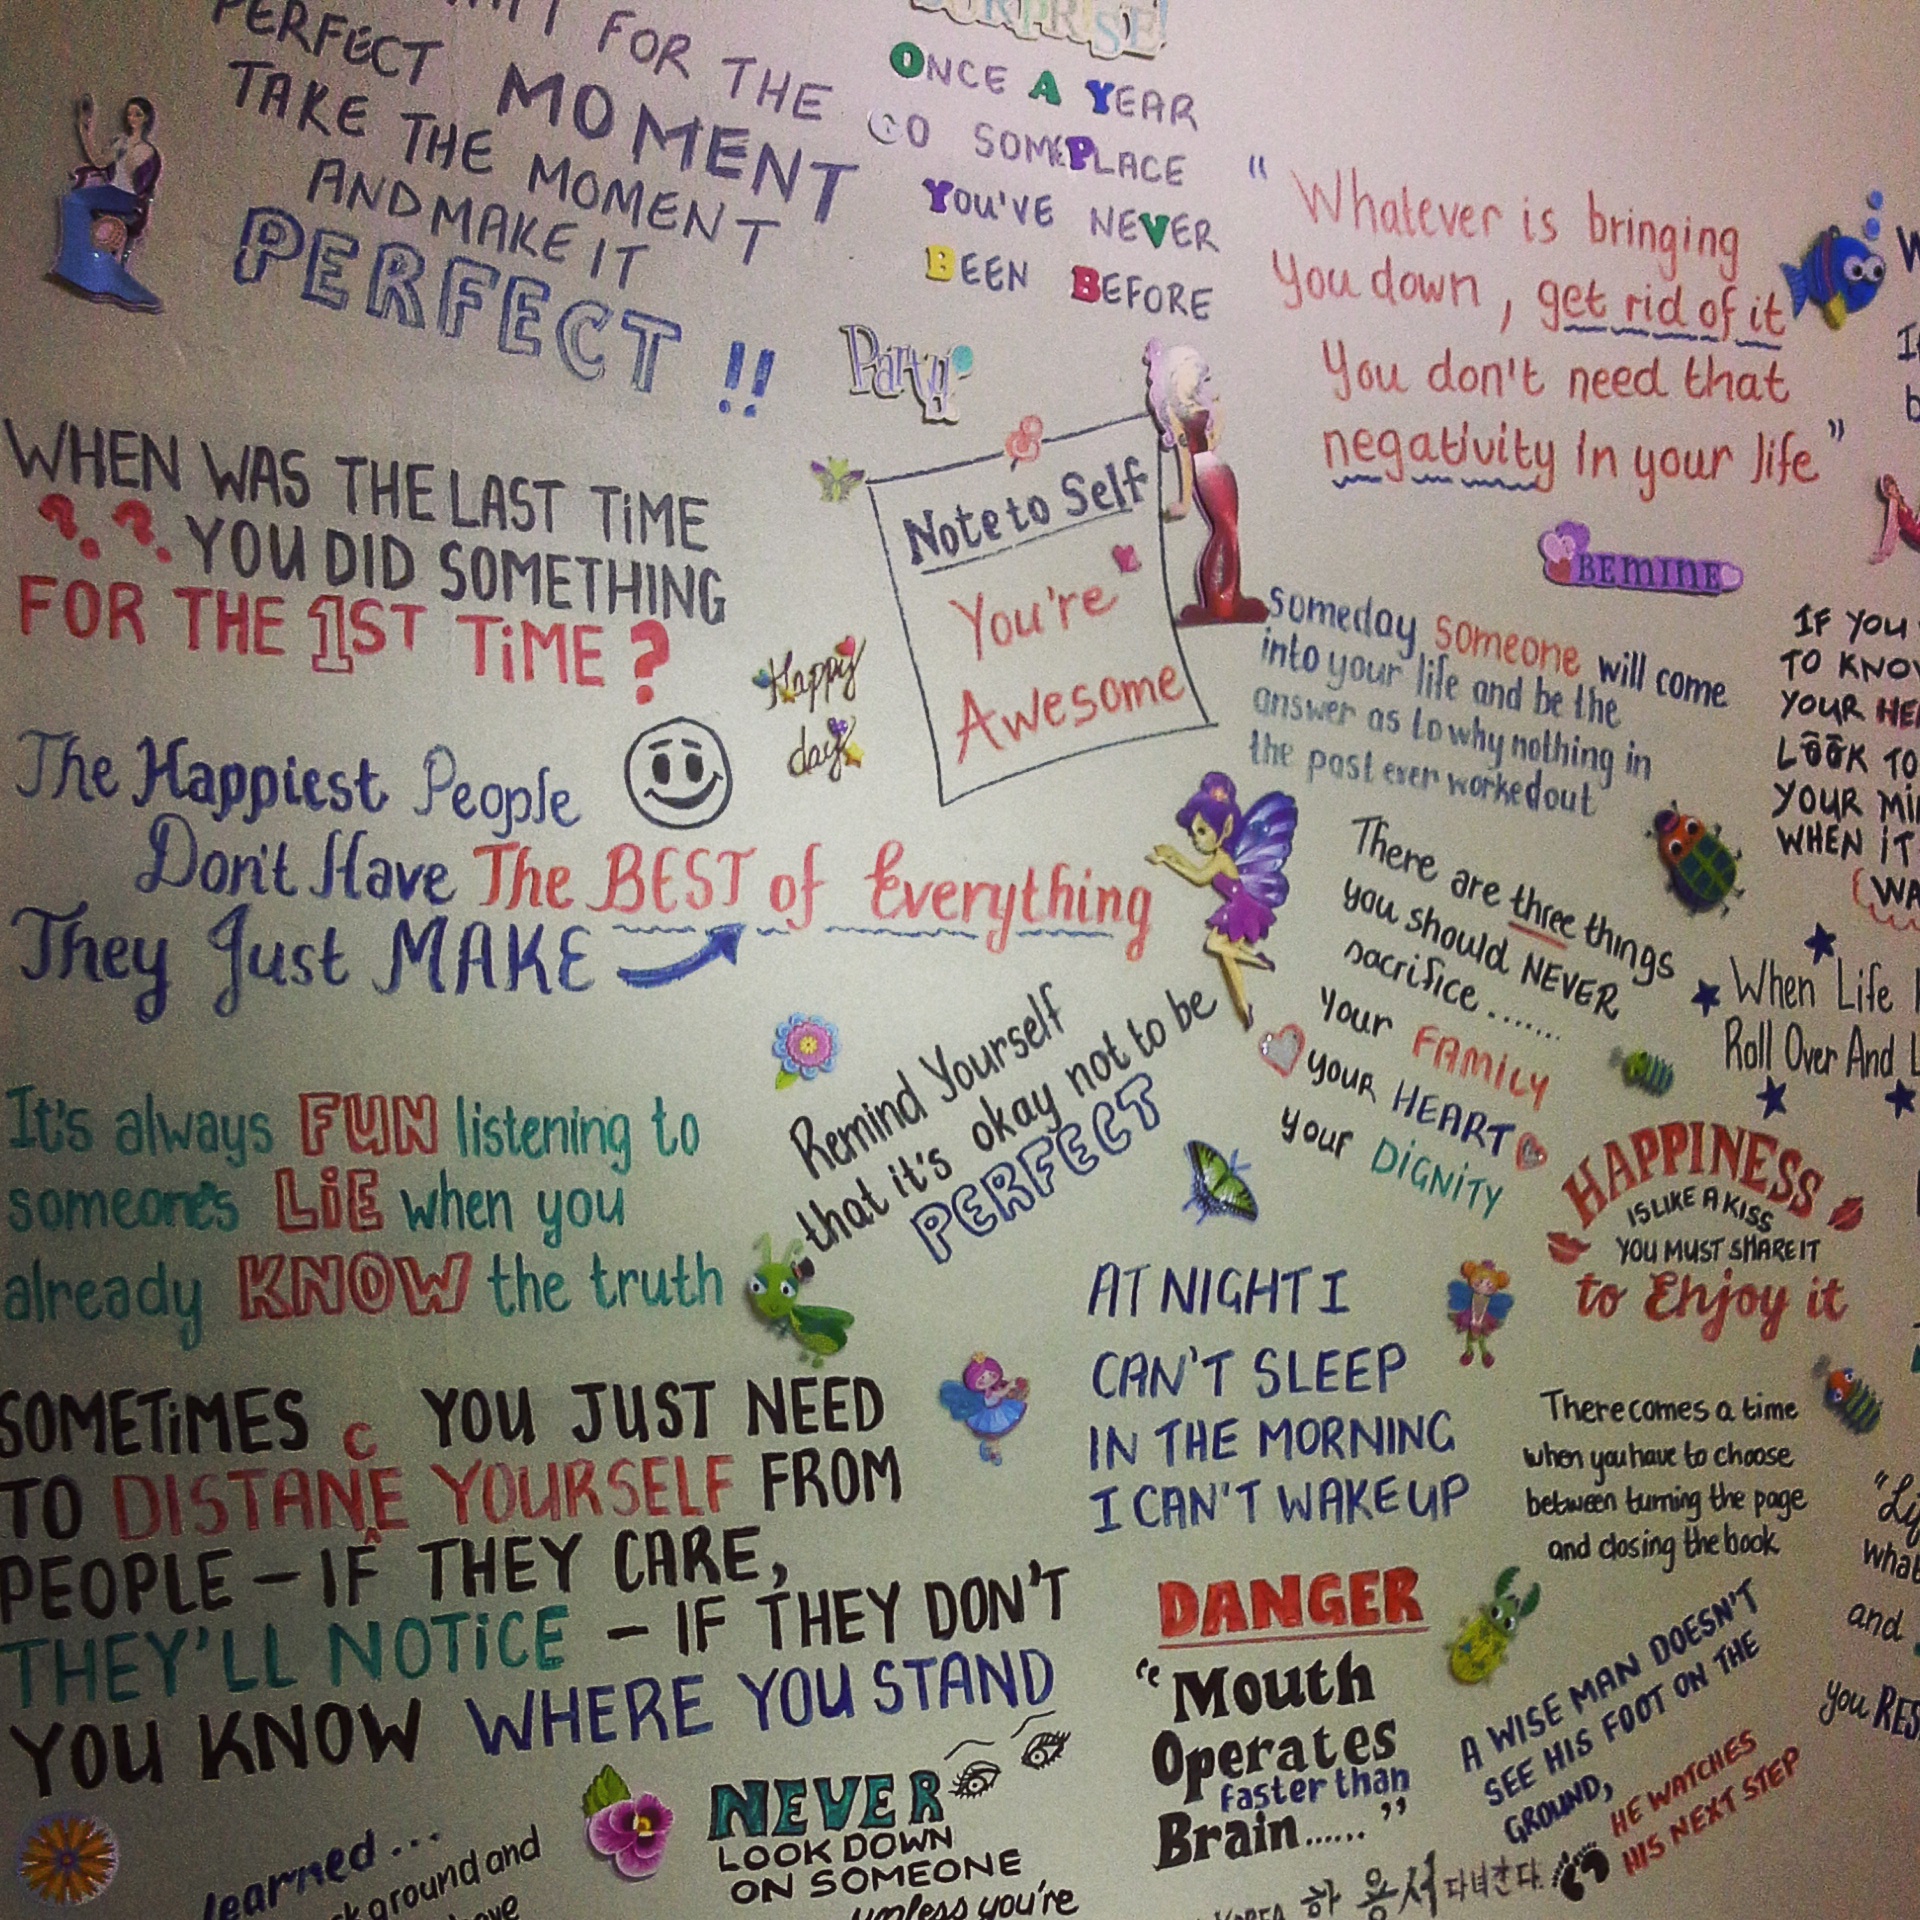 FOR THE
PERFECT MOMENT
TAKE THE MOMENT
AND MAKE IT
PERFECT !!
SURPRISE!
ONCE A YEAR
GO SOMEPLACE
YOU'VE NEVER
BEEN BEFORE
"Whatever is bringing
You down, get rid of it
You don't need that
negativity in your life"
Party!
WHEN WAS THE LAST TIME
?.?. YOU DID SOMETHING
FOR THE 1ST TIME?
Note to Self
You're
Awesome
BE MINE
someday someone will come
into your life and be the
answer as to why nothing in
the past ever worked out
IF YOU
TO KNOW
YOUR
LOOK TO
YOUR
WHEN IT
Happy
day
The Happiest People
Don't Have The BEST of Everything
They Just MAKE
There are three things
you should NEVER
sacrifice.......
Your FAMILY
your HEART
your DIGNITY
When Life
Roll Over And
Remind Yourself
that it's okay not to be
PERFECT
It's always FUN listening to
someone's LiE when you
already KNOW the truth
HAPPINESS
IS LIKE A KISS
YOU MUST SHARE IT
to Enjoy it
AT NIGHT I
CAN'T SLEEP
IN THE MORNING
I CAN'T WAKE UP
SOMETiMES YOU JUST NEED
c
TO DISTANE YOURSELF FROM
^
PEOPLE – IF THEY CARE,
THEY'LL NOTiCE – IF THEY DON'T
YOU KNOW WHERE YOU STAND
There comes a time
when you have to choose
between turning the page
and closing the book
what
and
you
DANGER
"Mouth
Operates
faster than
Brain......"
A WISE MAN DOESN'T
SEE HIS FOOT ON THE
GROUND,
HE WATCHES
HIS NEXT STEP
NEVER
LOOK DOWN
ON SOMEONE
unless you're
learned...
and
KOREA 하 용서 다녀간다.